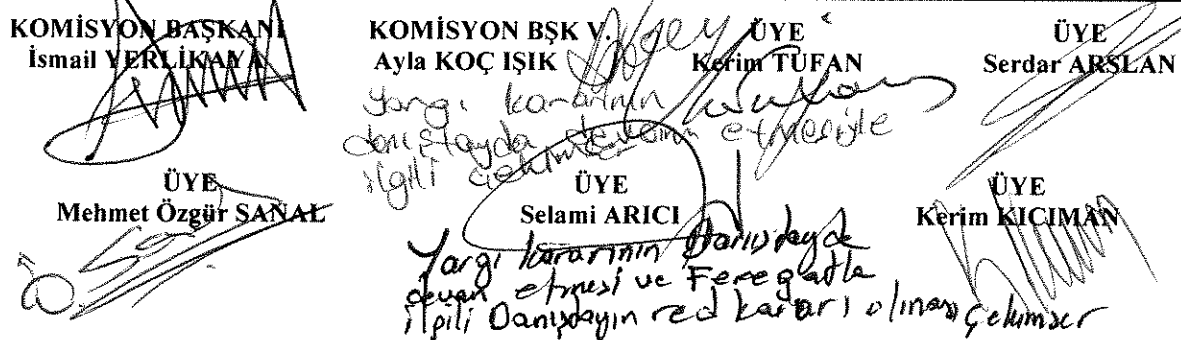 KOMİSYON BAŞKANI
İsmail YERLİKAYA
KOMİSYON BŞK V.
Ayla KOÇ IŞIK
ÜYE
Kerim TUFAN
ÜYE
Serdar ARSLAN
Yargı kararının
danıştayda devamın etmesiyle
ilgili çekimser
ÜYE
Mehmet Özgür SANAL
ÜYE
Selami ARICI
ÜYE
Kerim KICIMAN
Yargı kararının Danıştayda
devam etmesi ve Feregatla
ilgili Danıştayın red kararı olması çekimser